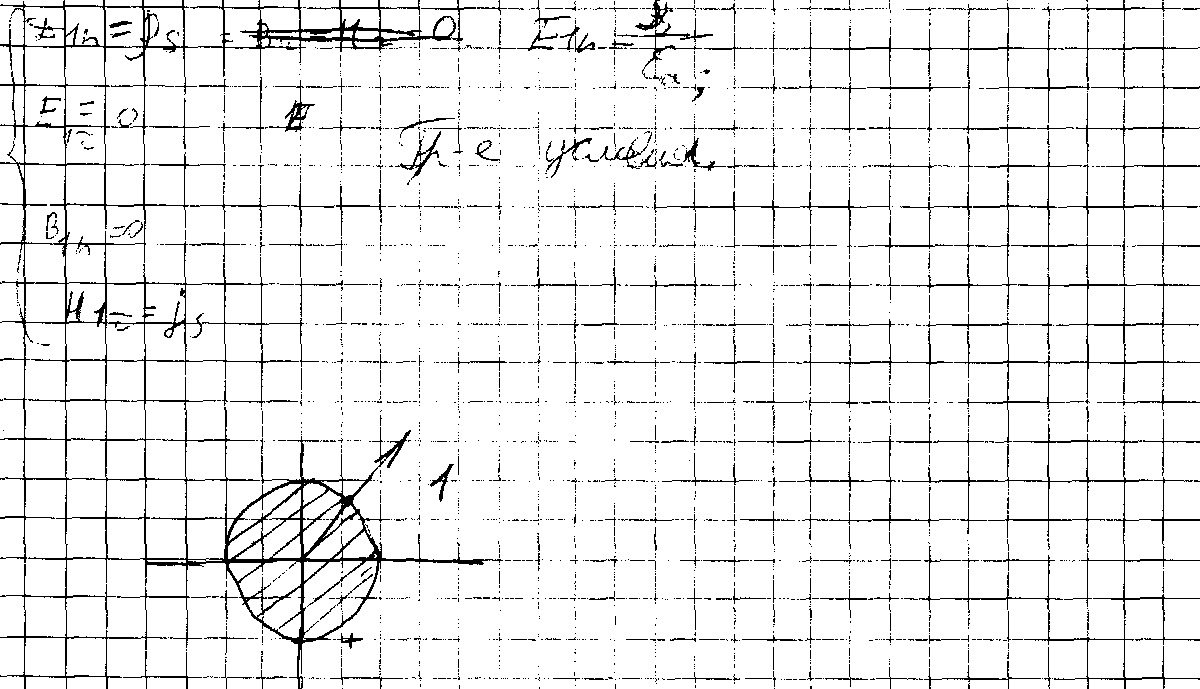 D₁ₙ = ρₛ = 0 E₁ₙ = ρₛ/εₐ;
E₁τ = 0 E
Гр-е условия.
B₁ₙ = 0
H₁τ = jₛ
1
+